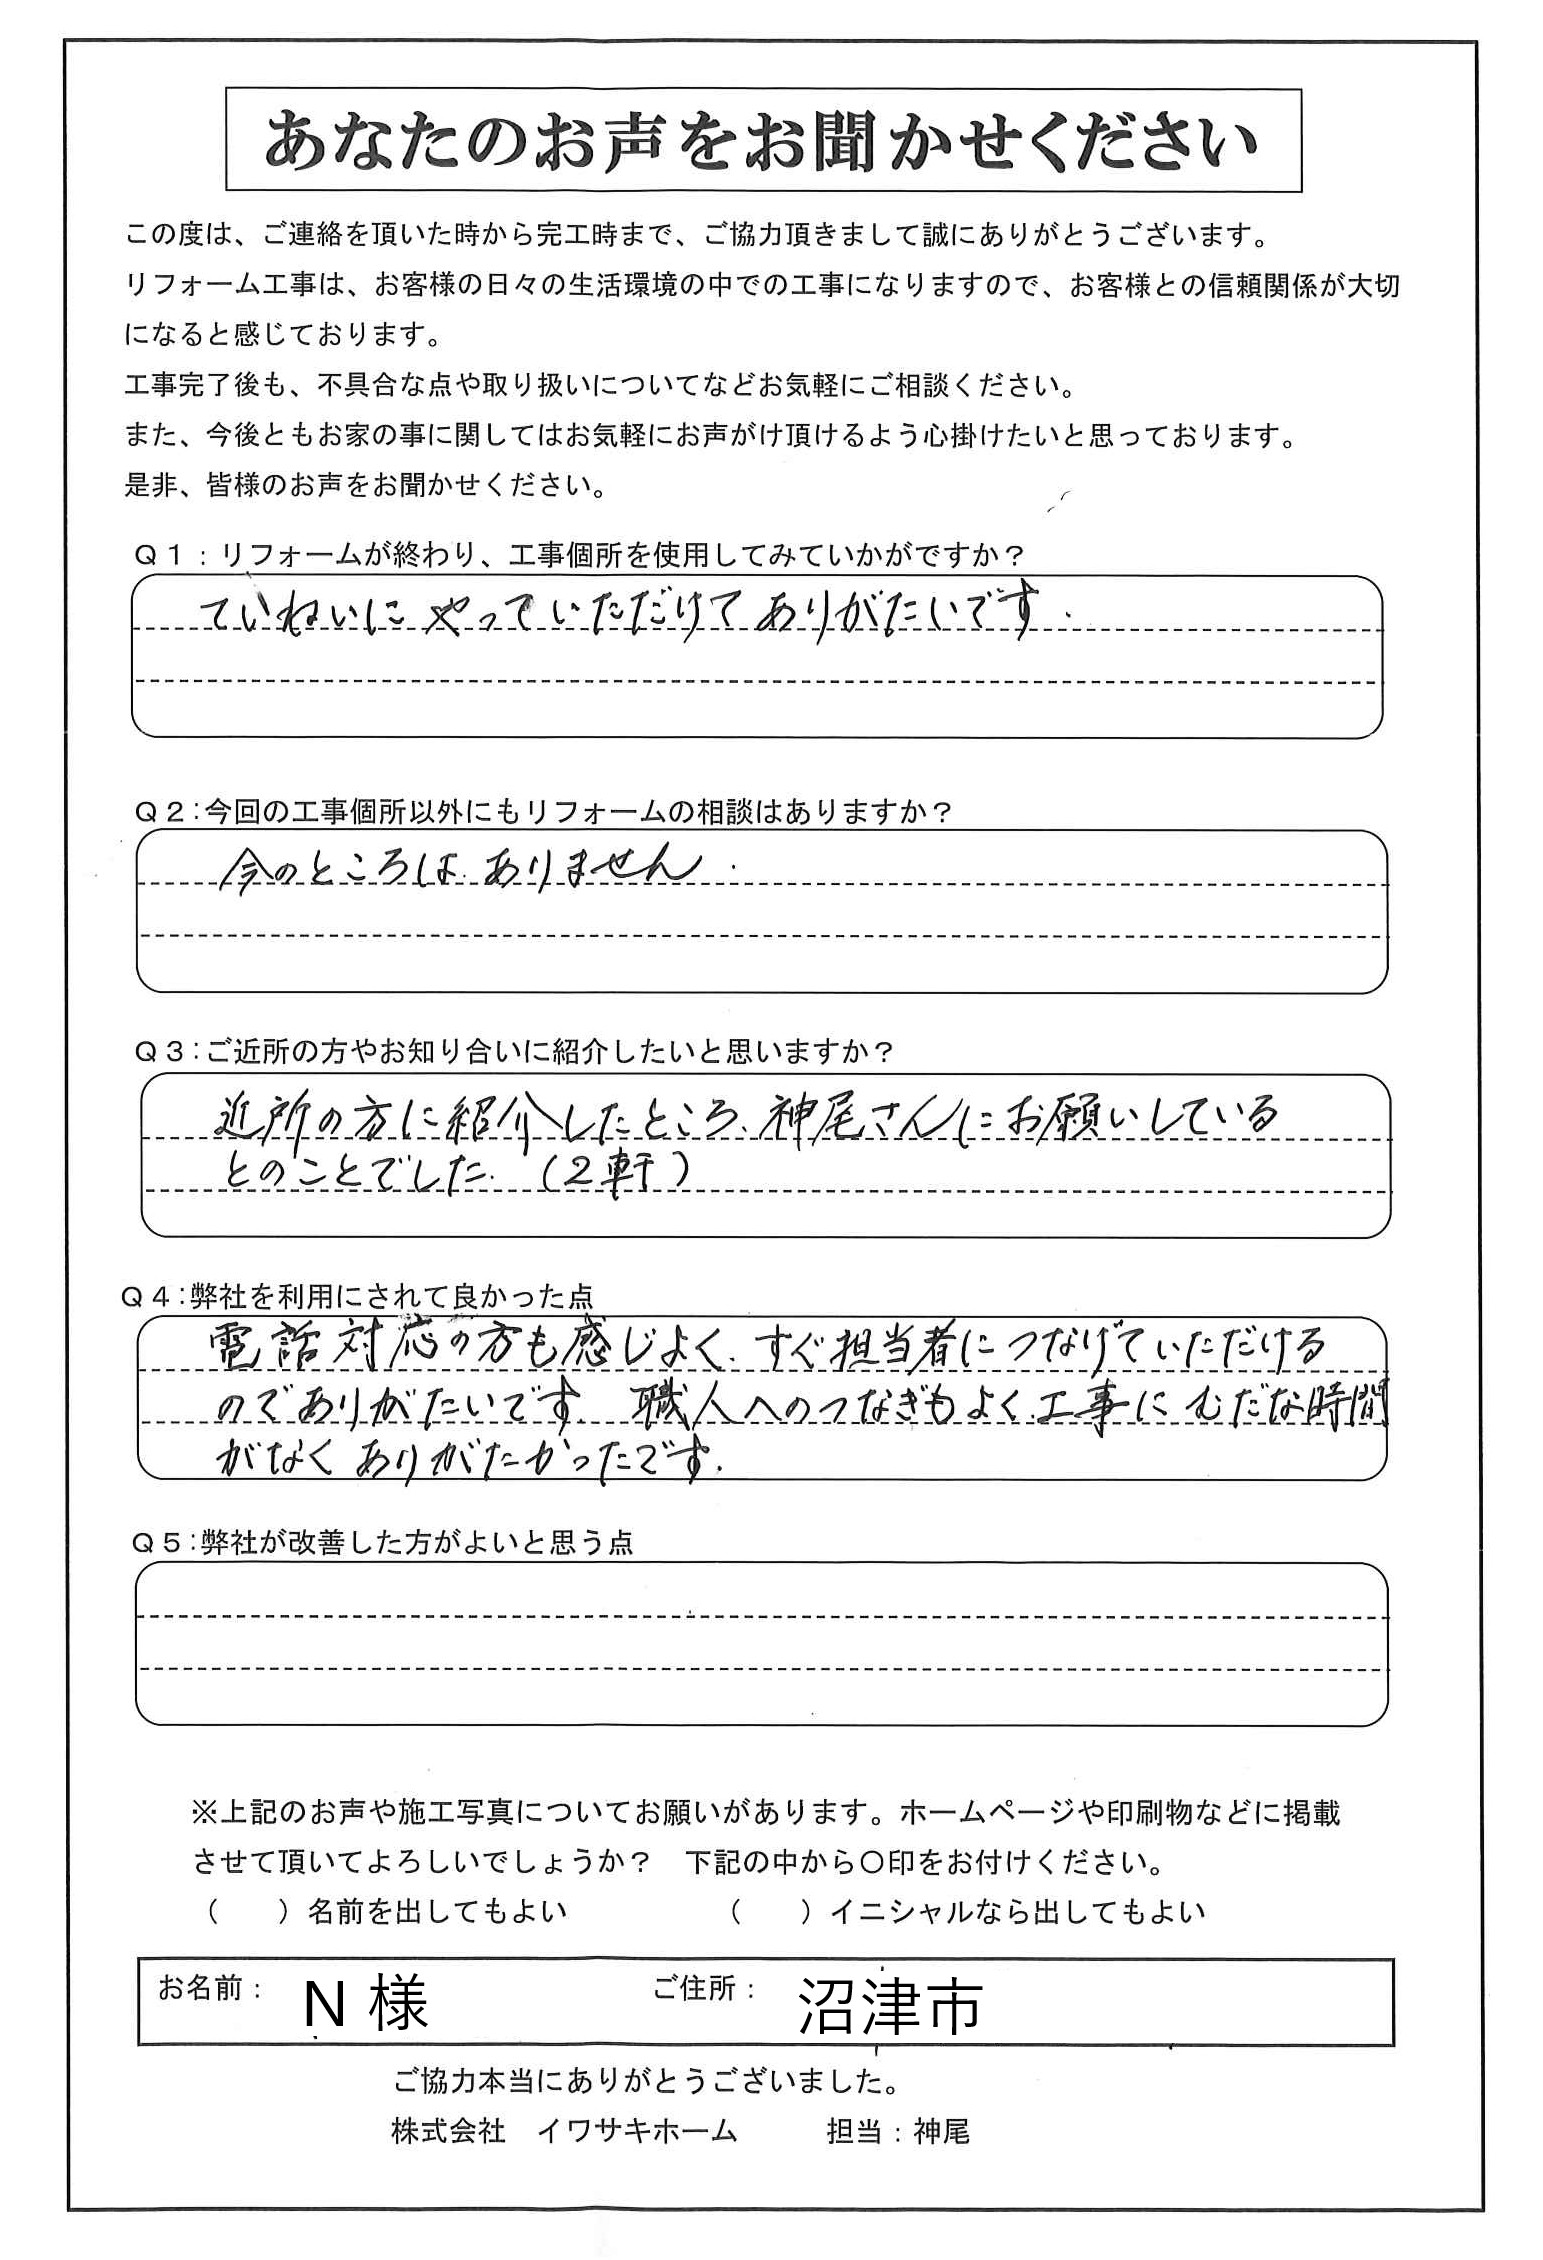 あなたのお声をお聞かせください
この度は、ご連絡を頂いた時から完工時まで、ご協力頂きまして誠にありがとうございます。
リフォーム工事は、お客様の日々の生活環境の中での工事になりますので、お客様との信頼関係が大切
になると感じております。
工事完了後も、不具合な点や取り扱いについてなどお気軽にご相談ください。
また、今後ともお家の事に関してはお気軽にお声がけ頂けるよう心掛けたいと思っております。
是非、皆様のお声をお聞かせください。
Q1：リフォームが終わり、工事個所を使用してみていかがですか？
ていねいにやっていただけてありがたいです.
Q2：今回の工事個所以外にもリフォームの相談はありますか？
今のところは、ありません.
Q3：ご近所の方やお知り合いに紹介したいと思いますか？
近所の方に紹介したところ、神尾さんにお願いしている
とのことでした.（2軒）
Q4：弊社を利用にされて良かった点
電話対応の方も感じよく、すぐ担当者につなげていただける
のでありがたいです. 職人へのつなぎもよく、工事にむだな時間
がなくありがたかったです.
Q5：弊社が改善した方がよいと思う点
※上記のお声や施工写真についてお願いがあります。ホームページや印刷物などに掲載
させて頂いてよろしいでしょうか？　下記の中から〇印をお付けください。
（　　）名前を出してもよい　　　　（　　）イニシャルなら出してもよい
お名前： N 様　　ご住所： 沼津市
ご協力本当にありがとうございました。
株式会社　イワサキホーム　　　担当：神尾